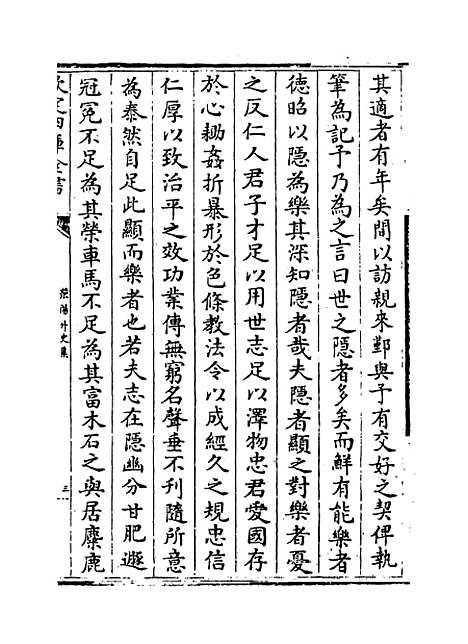 其適者有年矣間以訪親來鄞與予有交好之契俾執
筆為記予乃為之言曰世之隱者多矣而鮮有能樂者
德昭以隱為樂其深知隱者哉夫隱者顯之對樂者憂
之反仁人君子才足以用世志足以澤物忠君愛國存
於心鋤姦折暴形於色條教法令以成經久之規忠信
仁厚以致治平之效功業傳無窮名聲垂不刊隨所意
為泰然自足此顯而樂者也若夫志在隱幽分甘肥遯
冠冕不足為其榮車馬不足為其富木石之與居麋鹿
欽定四庫全書
滎陽外史集
三